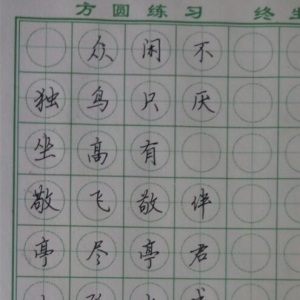 方圆练习 终生
独坐敬亭
众鸟高飞尽
闲只有敬亭
不厌伴君